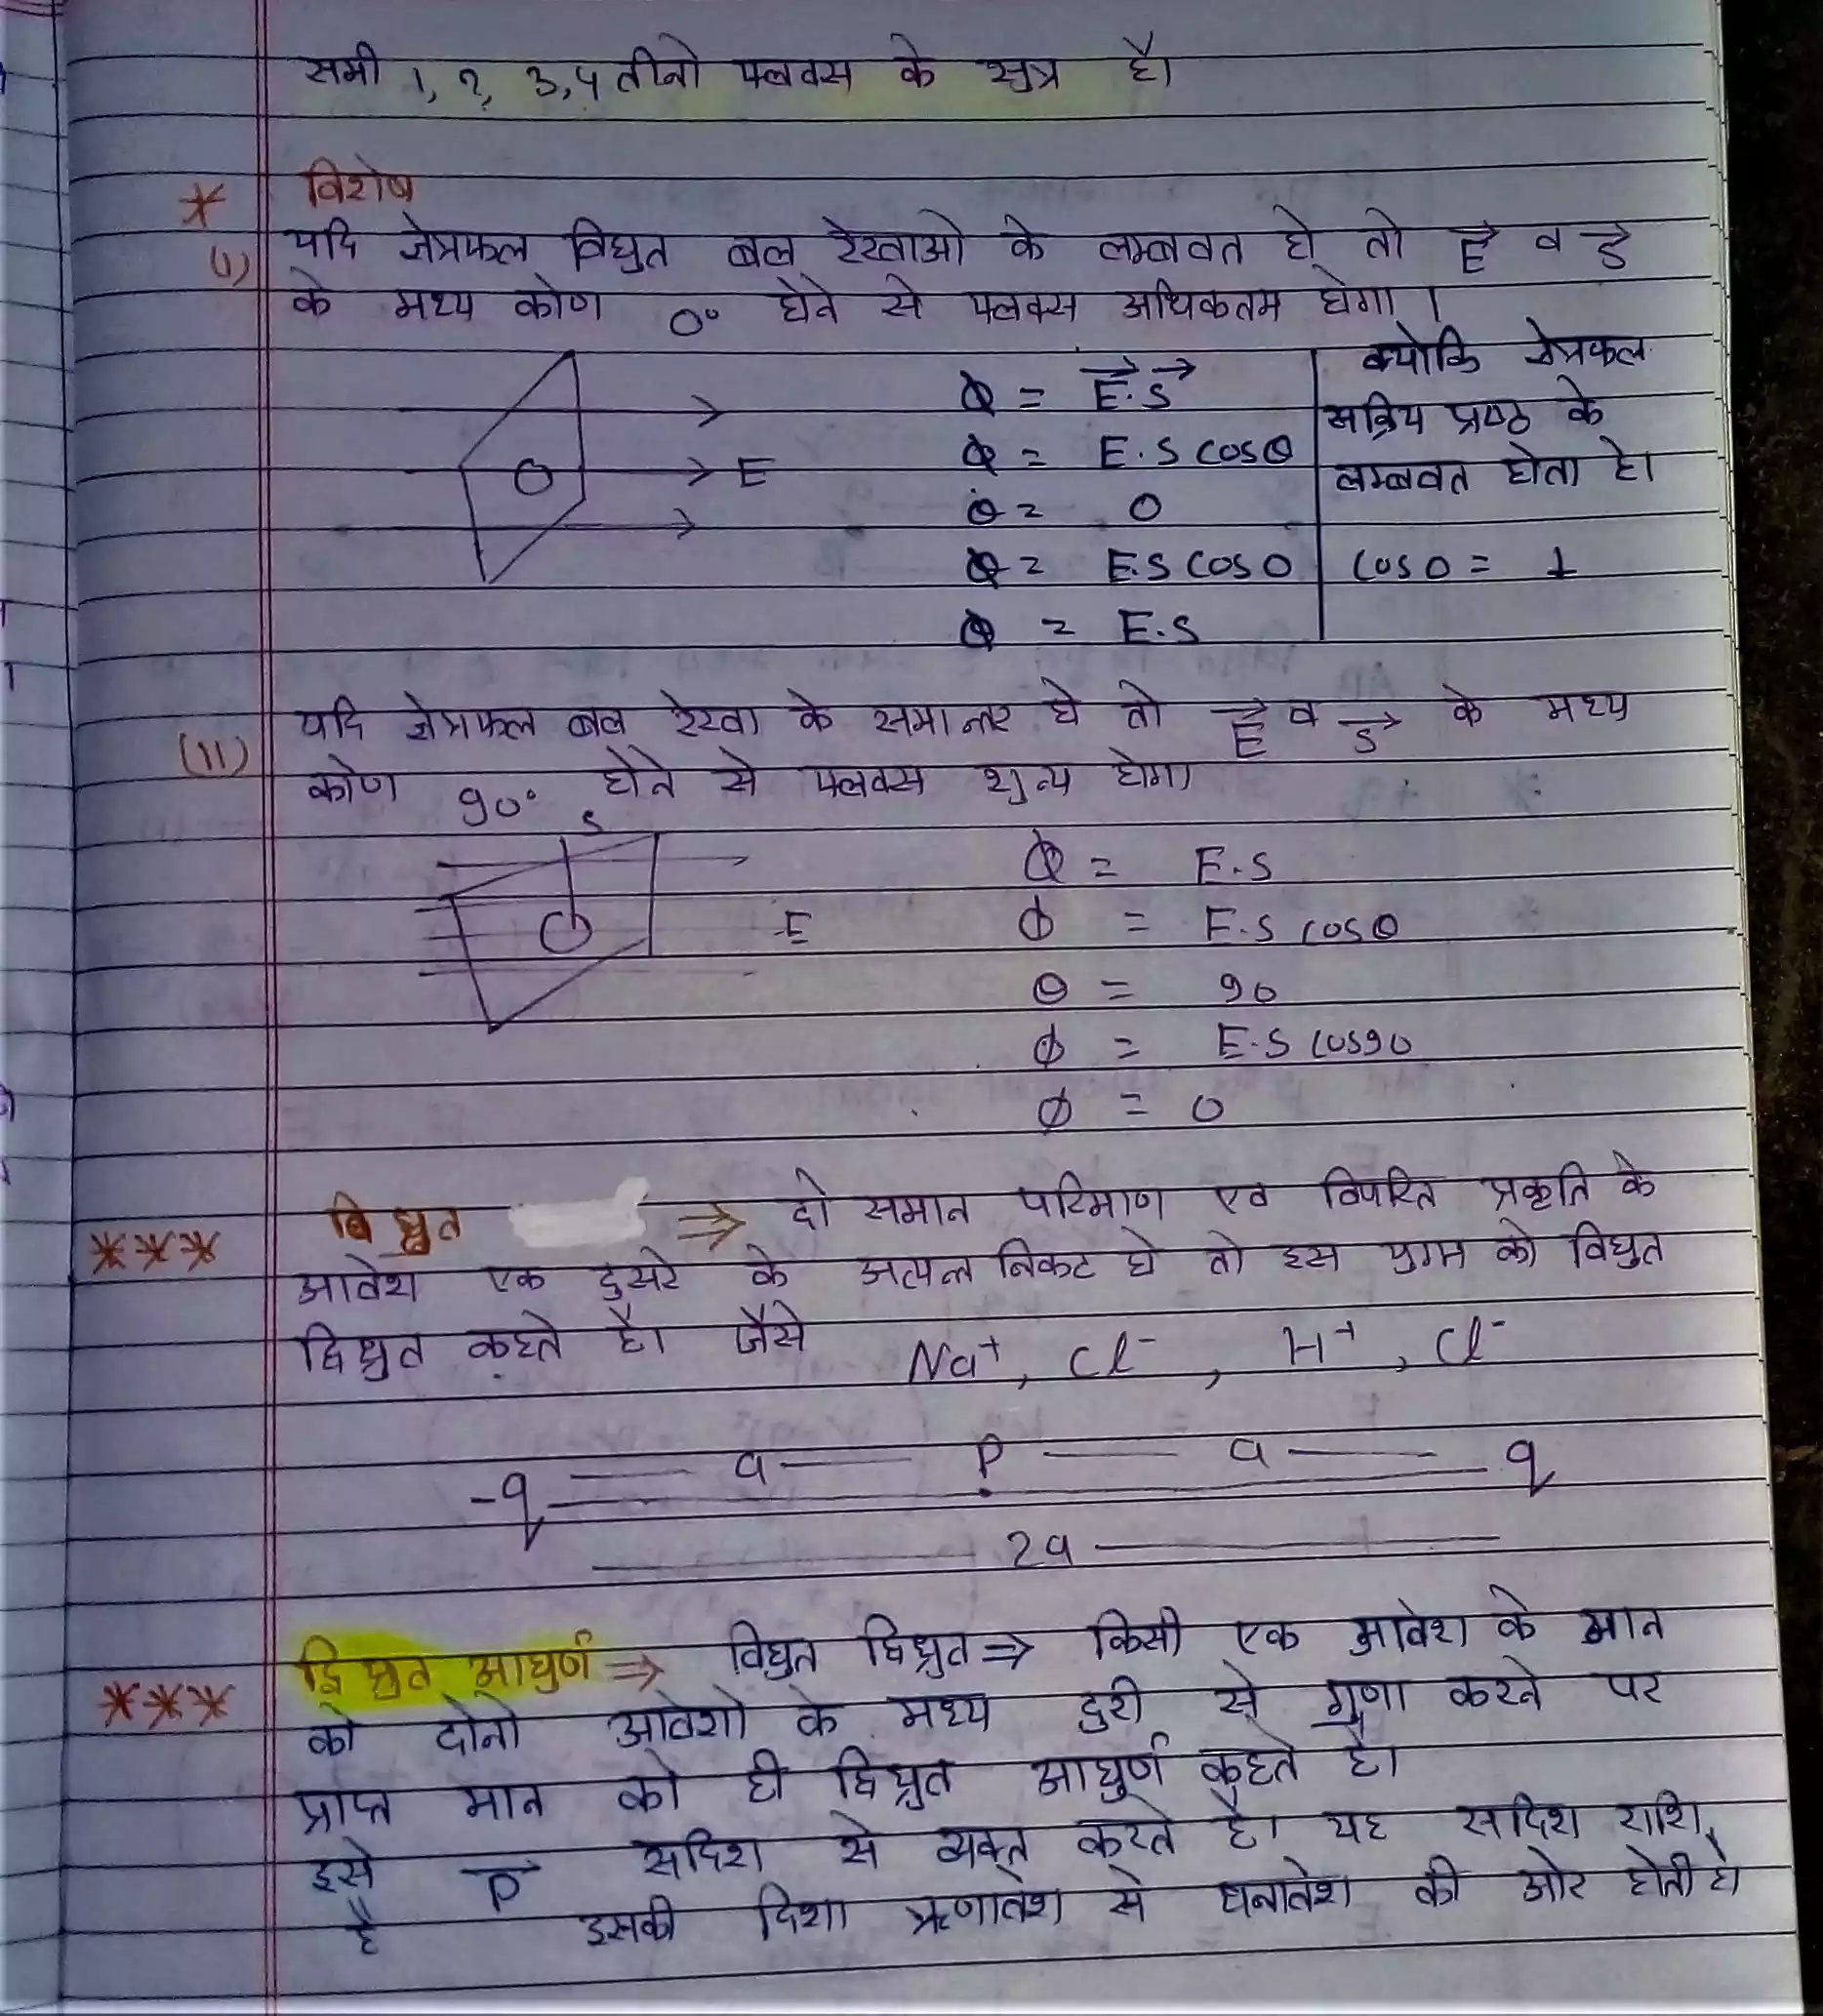 सभी 1, 2, 3, 4 तीनो फ्लक्स के सुत्र है।
* विशेष
(i) यदि क्षेत्रफल विधुत बल रेखाओ के लम्बवत हो तो E⃗ व S⃗
के मध्य कोण 0° होने से फ्लक्स अधिकतम होगा ।
ϕ = E⃗.S⃗
ϕ = E.S cosθ
θ = 0
ϕ = E.S cos0
ϕ = E.S
क्योकि क्षेत्रफल
सक्रिय प्रष्ठ के
लम्बवत होता है।
cos0 = 1
E
(11) यदि क्षेत्रफल बल रेखा के समान्तर हो तो E⃗ व S⃗ के मध्य
कोण 90° होने से फ्लक्स शुन्य होगा।
S
E
ϕ = E.S
ϕ = E.S cosθ
θ = 90
ϕ = E.S cos90
ϕ = 0
*** विधुत ⇒ दो समान परिमाण एव विपरित प्रकृति के
आवेश एक दुसरे के अत्यन्त निकट हो तो इस युग्म को विधुत
द्विध्रुत कहते है। जैसे Na⁺, Cl⁻, H⁺, Cl⁻
-q a P a q
2a
*** द्विध्रुत आघुर्ण ⇒ विधुत द्विध्रुत ⇒ किसी एक आवेश के मान
को दोनो आवेशो के मध्य दुरी से गुणा करने पर
प्राप्त मान को ही द्विध्रुत आघुर्ण कहते है।
इसे P⃗ सदिश से व्यक्त करते है। यह सदिश राशि
है इसकी दिशा ऋणावेश से धनावेश की ओर होती है।